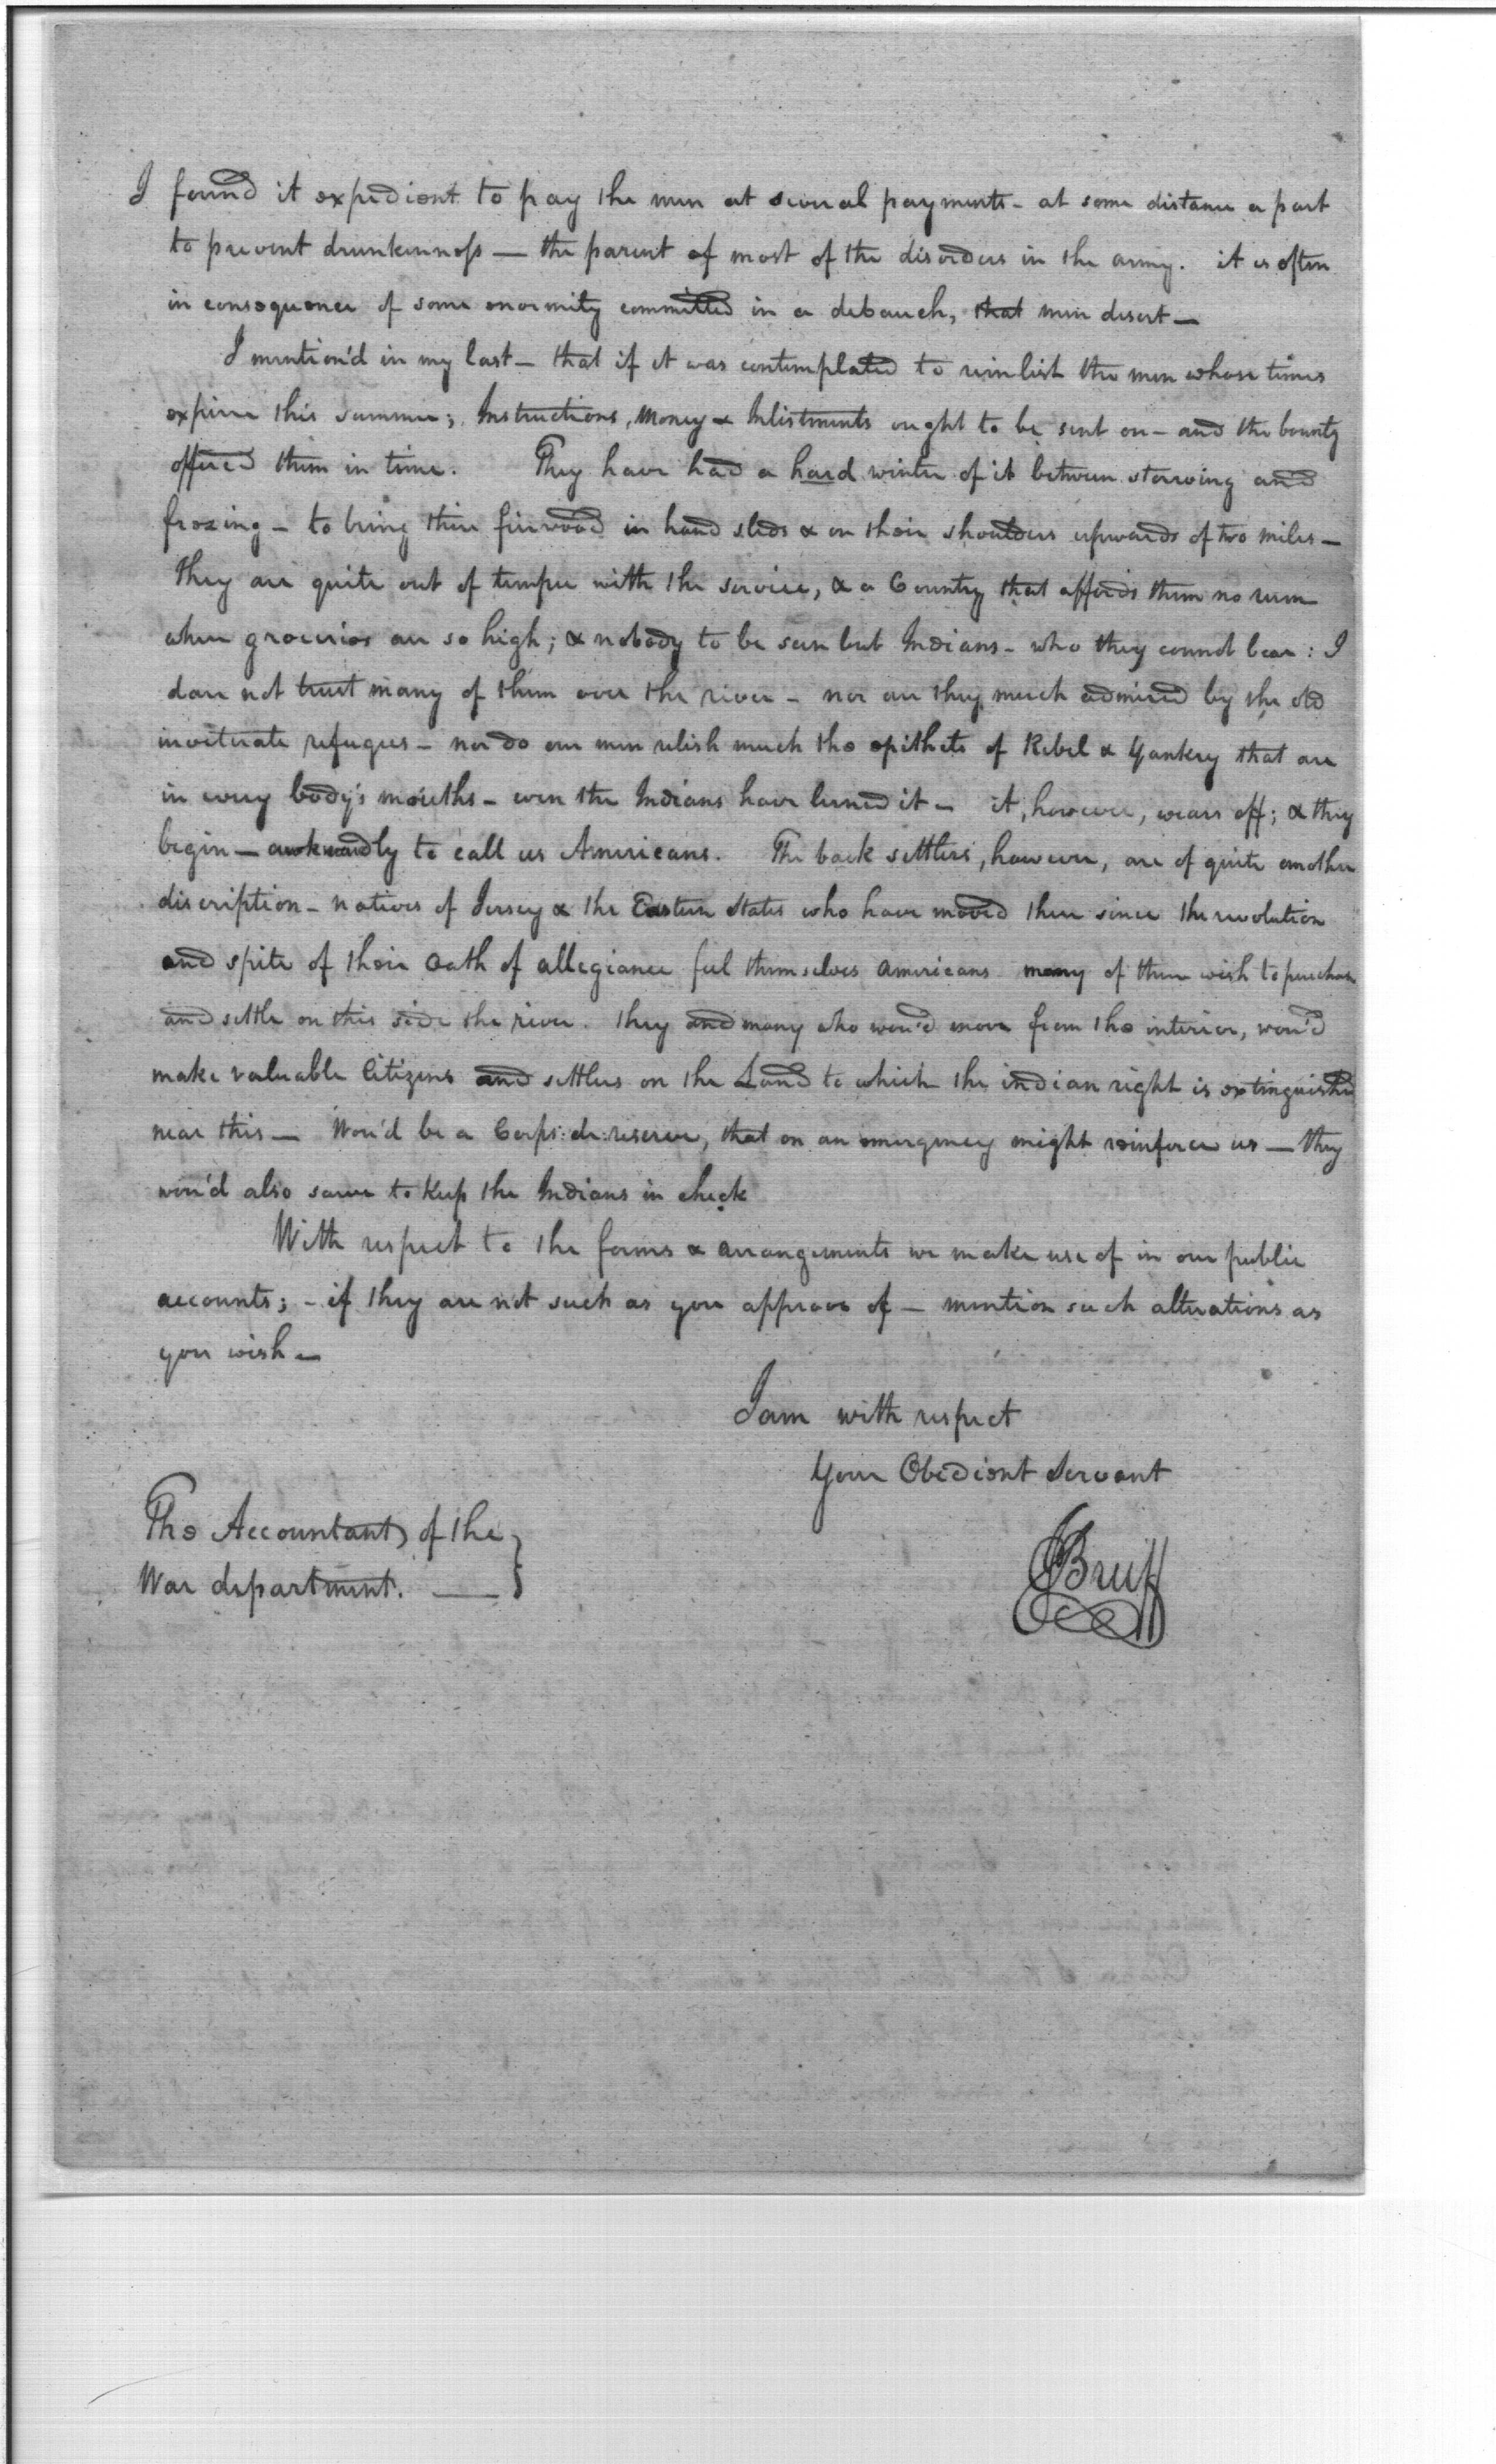 I found it expedient to pay the men at several payments - at some distance a part
to prevent drunkenness — the parent of most of the disorders in the army. it is often
in consequence of some enormity committed in a debauch, that men desert —
I mention'd in my last - that if it was contemplated to reinlist the men whose times
expire this summer; Instructions, Money & Inlistments ought to be sent on - and the bounty
offered them in time. They have had a hard winter of it between starving and
frezing - to bring their firewood in hand sleds & on their shoulders upwards of two miles -
They are quite out of temper with the service, & a Country that affords them no rum
when groceries are so high; & nobody to be seen but Indians - who they cannot bear: I
dare not trust many of them over the river - nor are they much admired by the old
inveterate refugees - nor do our men relish much the epithets of Rebel & Yankey that are
in every body's mouths - even the Indians have lerned it - it, however, wears off; & they
begin — awkwardly to call us Americans. The back settlers, however, are of quite another
discription - natives of Jersey & the Eastern States who have moved there since the revolution
and spite of their Oath of allegiance feel themselves Americans many of them wish to purchase
and settle on this side the river. they and many who wou'd move from the interior, wou'd
make valuable Citizens and settlers on the Land to which the indian right is extinguished
near this — Wou'd be a Corps:de:reserve, that on an emergency might reinforce us — they
wou'd also serve to keep the Indians in check
With respect to the forms & arrangements we make use of in our public
accounts; - if they are not such as you approve of - mention such alterations as
you wish -
I am with respect
Your Obedient Servant
The Accountant of the
War department. —
JBruff